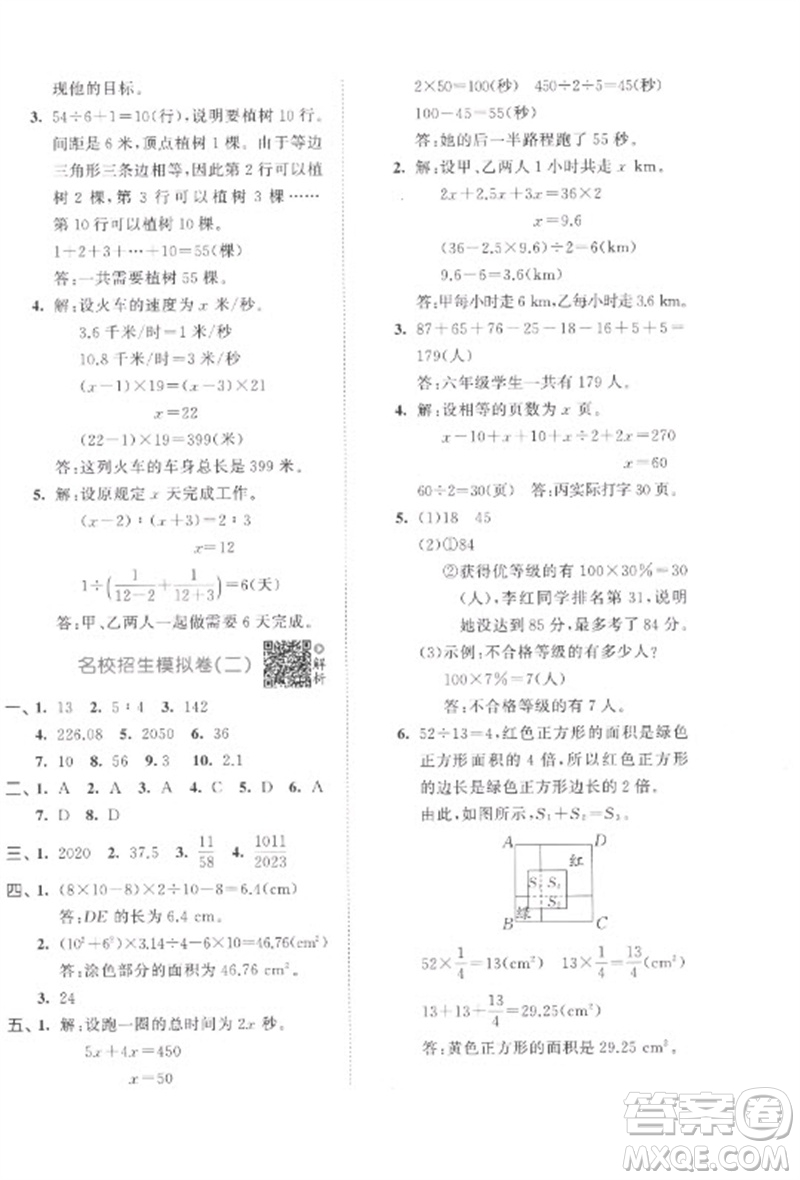 现他的目标。
3. 54÷6+1=10(行),说明要植树 10 行。
间距是 6 米,顶点植树 1 棵。由于等边
三角形三条边相等,因此第 2 行可以植
树 2 棵,第 3 行可以植树 3 棵……
第 10 行可以植树 10 棵。
1+2+3+…+10=55(棵)
答:一共需要植树 55 棵。
4. 解:设火车的速度为 x 米/秒。
3.6 千米/时=1 米/秒
10.8 千米/时=3 米/秒
(x-1)×19=(x-3)×21
x=22
(22-1)×19=399(米)
答:这列火车的车身总长是 399 米。
5. 解:设原规定 x 天完成工作。
(x-2)∶(x+3)=2∶3
x=12
1÷(1/(12-2)+1/(12+3))=6(天)
答:甲、乙两人一起做需要 6 天完成。
名校招生模拟卷(二) 解析
一、1. 13 2. 5∶4 3. 142
4. 226.08 5. 2050 6. 36
7. 10 8. 56 9. 3 10. 2.1
二、1. A 2. A 3. A 4. C 5. D 6. A
7. D 8. D
三、1. 2020 2. 37.5 3. 11/58 4. 1011/2023
四、1. (8×10-8×2)×2÷10=6.4(cm)
答:DE 的长为 6.4 cm。
2. (10²+6²)×3.14÷4-6×10=46.76(cm²)
答:涂色部分的面积为 46.76 cm²。
3. 24
五、1. 解:设跑一圈的总时间为 2x 秒。
5x+4x=450
x=50
2×50=100(秒) 450÷2÷5=45(秒)
100-45=55(秒)
答:她的后一半路程跑了 55 秒。
2. 解:设甲、乙两人 1 小时共走 x km。
2x+2.5x+3x=36×2
x=9.6
(36-2.5×9.6)÷2=6(km)
9.6-6=3.6(km)
答:甲每小时走 6 km,乙每小时走 3.6 km。
3. 87+65+76-25-18-16+5+5=
179(人)
答:六年级学生一共有 179 人。
4. 解:设相等的页数为 x 页。
x-10+x+10+x÷2+2x=270
x=60
60÷2=30(页) 答:丙实际打字 30 页。
5. (1)18 45
(2)①84
②获得优等级的有 100×30%=30
(人),李红同学排名第 31,说明
她没达到 85 分,最多考了 84 分。
(3)示例:不合格等级的有多少人?
100×7%=7(人)
答:不合格等级的有 7 人。
6. 52÷13=4,红色正方形的面积是绿色
正方形面积的 4 倍。所以红色正方形
的边长是绿色正方形边长的 2 倍。
由此,如图所示,S₁+S₂=S₃。
A D
红
S₁
S₂
绿
B C
52×1/4=13(cm²) 13×1/4=13/4(cm²)
13+13+13/4=29.25(cm²)
答:黄色正方形的面积是 29.25 cm²。
答案圈
MXQE.COM